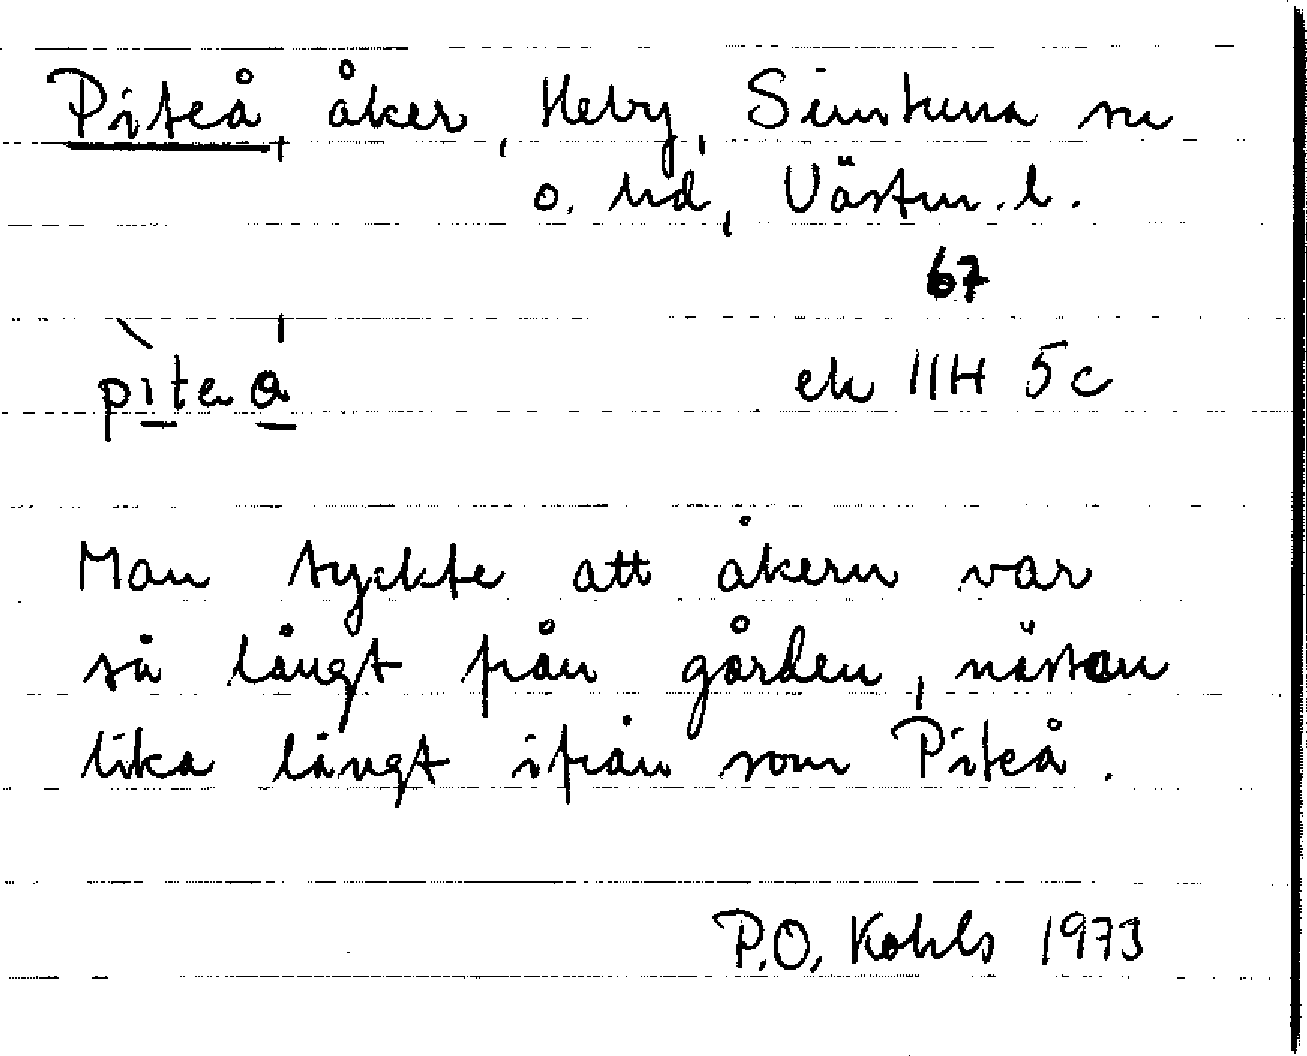 Piteå, åker, Heby, Simtuna sn
o. hd, Västm. l.
67
pìteǻ
ek 11H 5c
Man tyckte att åkern var
så långt från gården, nästan
lika långt ifrån som Piteå.
P.O. Kohls 1973